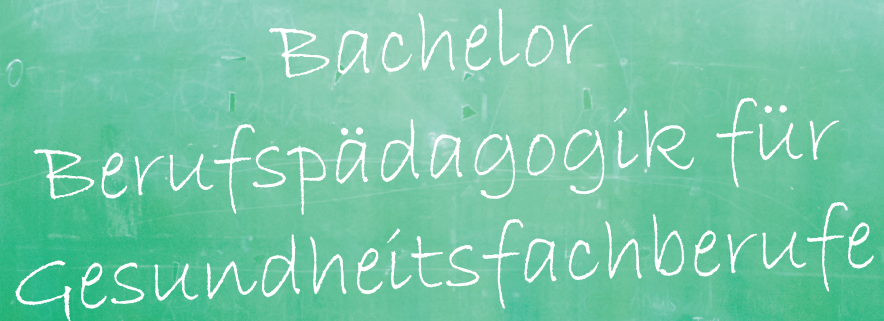 Bachelor
Berufspädagogik für
Gesundheitsfachberufe